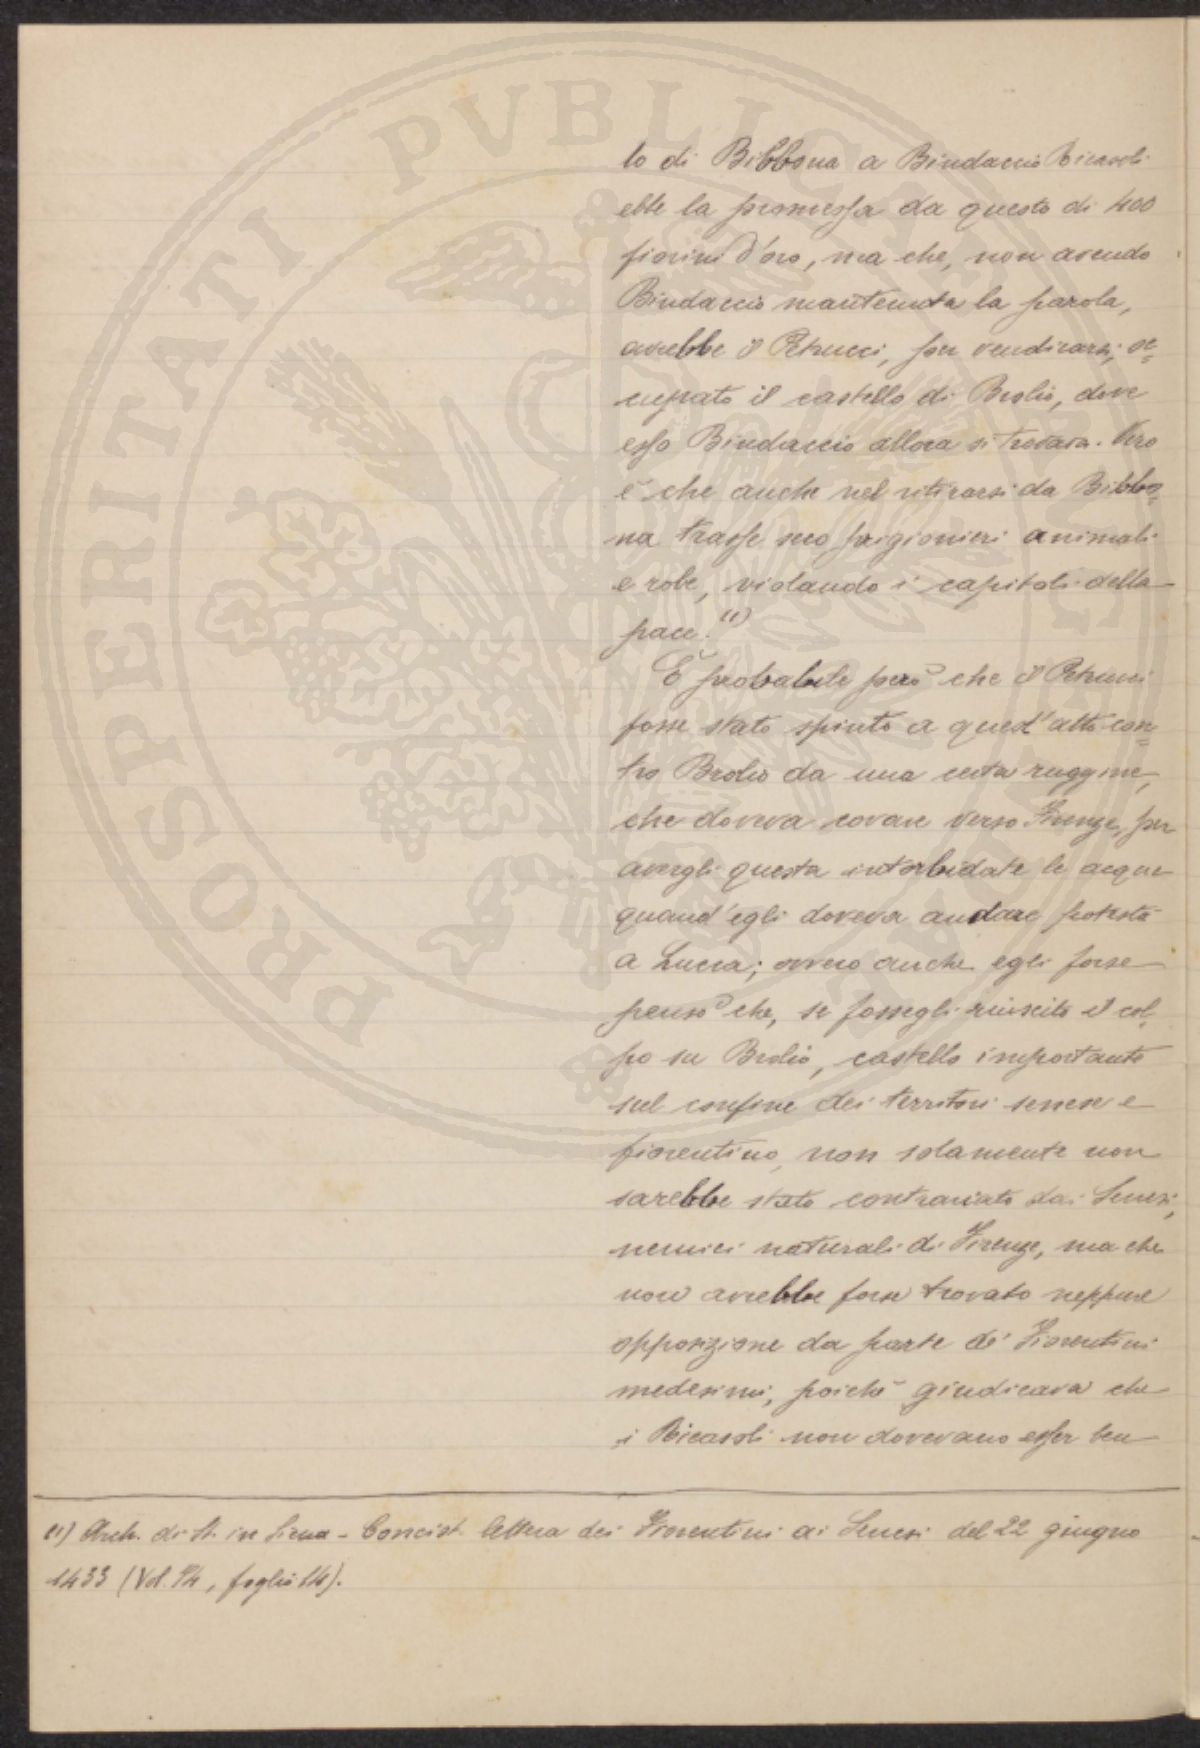 PROSPERITATI PVBLICAE
lo di Bibbona a Bindaccio Ricasoli
ebbe la promessa da questo di 400
fiorini d'oro, ma che, non avendo
Bindaccio mantenuta la parola,
avrebbe il Petrucci, per vendicarsi, oc=
cupato il castello di Brolio, dove
esso Bindaccio allora si trovava. Vero
è che anche nel ritirarsi da Bibbo=
na trasse seco prigionieri animali
e robe, violando i capitoli della
pace. (1)
È probabile però che il Petrucci
fosse stato spinto a quest'atto con=
tro Brolio da una certa ruggine,
che doveva covare verso Firenze, per
avergli questa intorbidate le acque
quand'egli doveva andare potestà
a Lucca; ovvero anche egli forse
pensò che, se fossegli riuscito il col=
po su Brolio, castello importante
sul confine dei territori senese e
fiorentino, non solamente non
sarebbe stato contrariato dai Senesi,
nemici naturali di Firenze, ma che
non avrebbe forse trovato neppure
opposizione da parte de' Fiorentini
medesimi, poichè giudicava che
i Ricasoli non dovevano esser ben
(1) Arch. di St. in Siena - Concist. lettera dei Fiorentini ai Senesi del 22 giugno
1433 (Vol. , foglio 14).